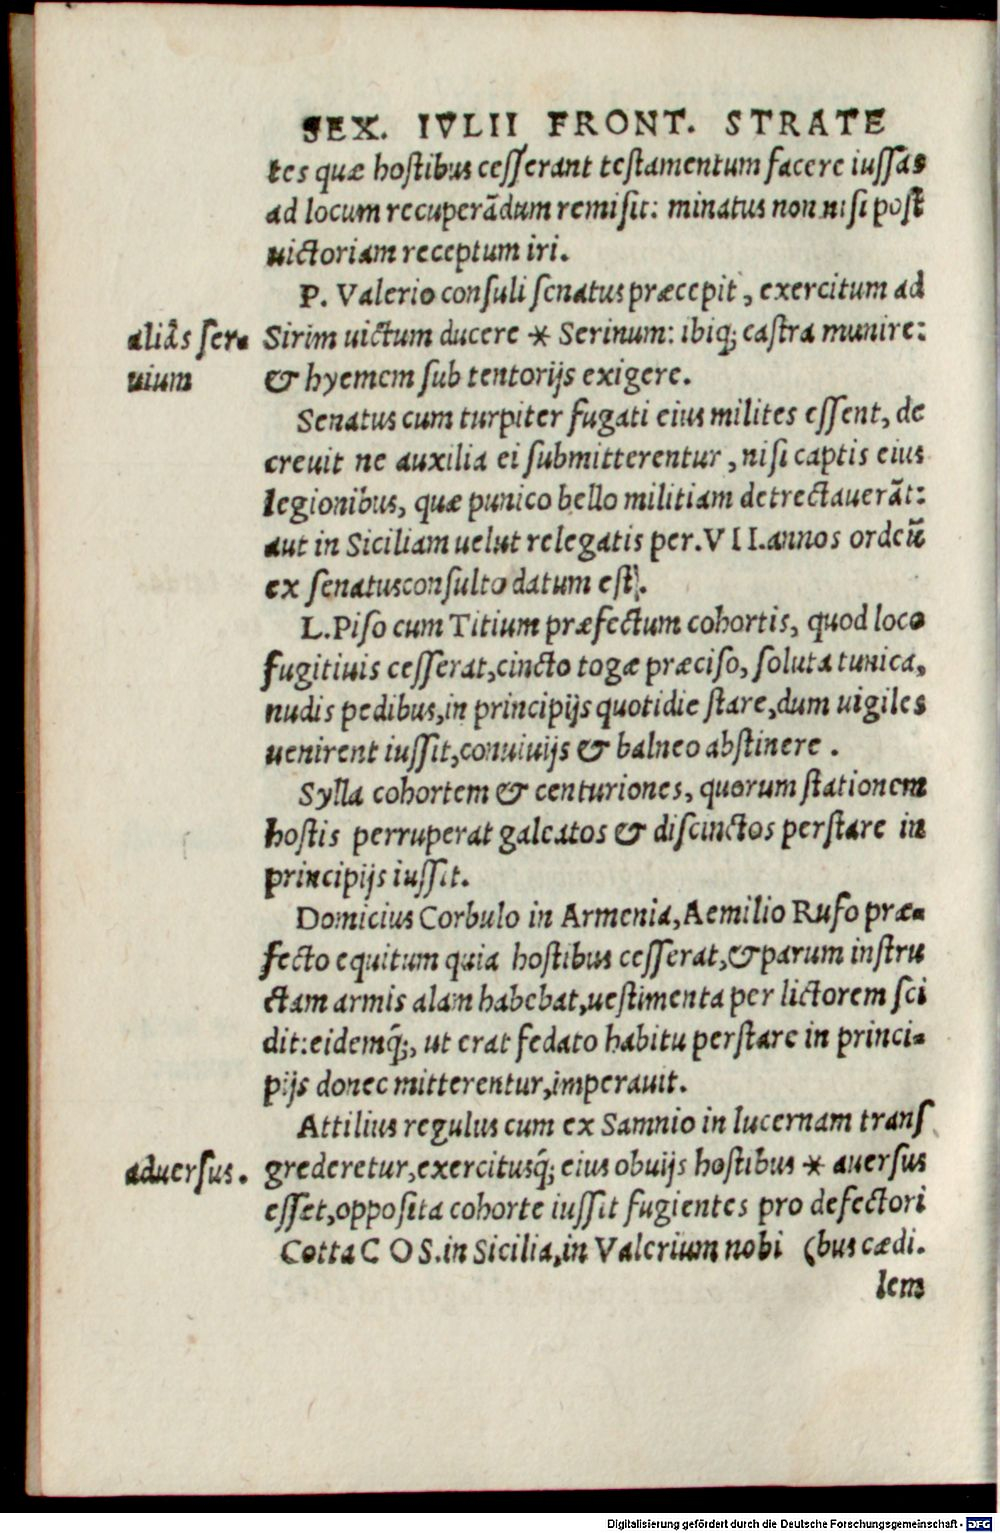 SEX. IVLII FRONT. STRATE
tes quæ hostibus cesserant testamentum facere iussas
ad locum recuperādum remisit: minatus non nisi post
uictoriam receptum iri.
P. Valerio consuli senatus præcepit, exercitum ad
aliâs ser-
uium
Sirim uictum ducere * Serinum: ibiq; castra munire:
& hyemem sub tentorijs exigere.
Senatus cum turpiter fugati eius milites essent, de
creuit ne auxilia ei submitterentur, nisi captis eius
legionibus, quæ punico bello militiam detrectauerāt:
aut in Siciliam uelut relegatis per.VII.annos ordeū
ex senatusconsulto datum est.
L.Piso cum Titium præfectum cohortis, quod loco
fugitiuis cesserat,cincto togæ præciso, soluta tunica,
nudis pedibus,in principijs quotidie stare,dum uigiles
uenirent iussit,conuiuijs & balneo abstinere .
Sylla cohortem & centuriones, quorum stationem
hostis perruperat galeatos & discinctos perstare in
principijs iussit.
Domicius Corbulo in Armenia,Aemilio Rufo præ-
fecto equitum quia hostibus cesserat,& parum instru
ctam armis alam habebat,uestimenta per lictorem sci
dit:eidemq̃;, ut erat fedato habitu perstare in princi-
pijs donec mitterentur,imperauit.
Attilius regulus cum ex Samnio in lucernam trans
aduersus.
grederetur,exercitusq̃; eius obuijs hostibus * auersus
esset,opposita cohorte iussit fugientes pro defectori
Cotta C O S.in Sicilia,in Valerium nobi (bus cædi.
lem
Digitalisierung gefördert durch die Deutsche Forschungsgemeinschaft - DFG